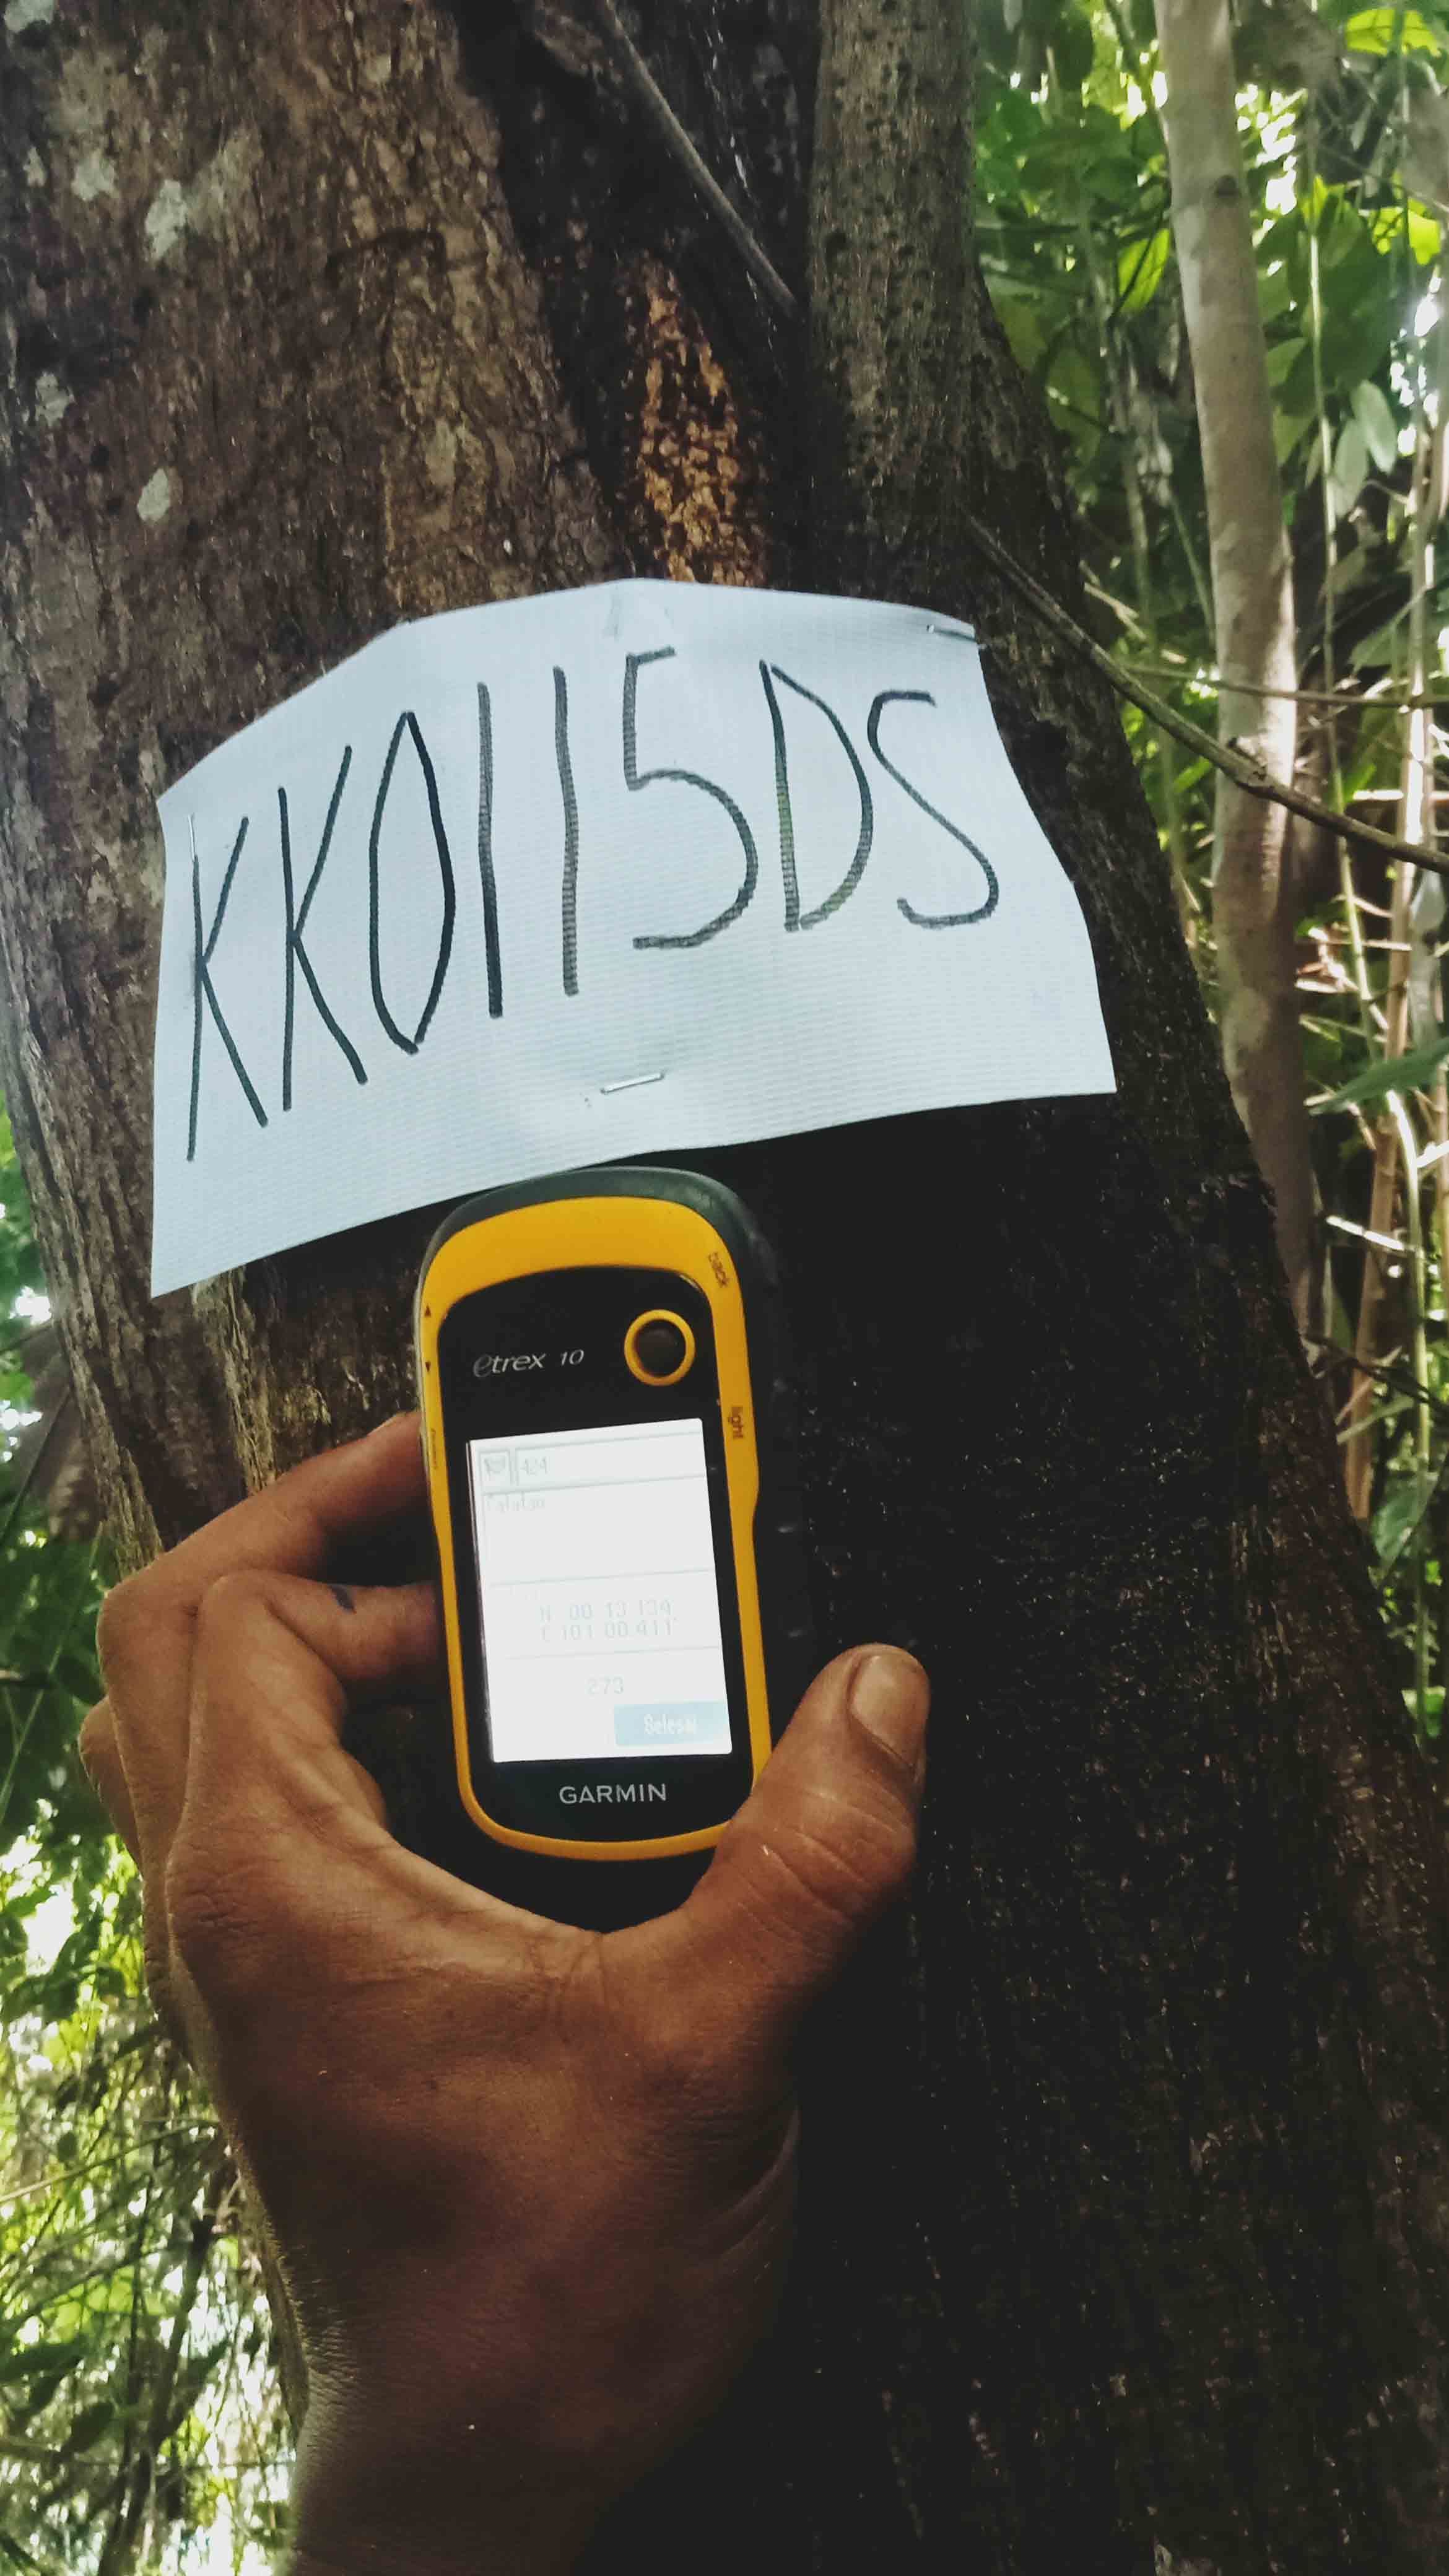 KK0115DS
back
etrex 10
light
424
Catatan
N 00 13.134'
E 101 00.411'
273
Selesai
GARMIN